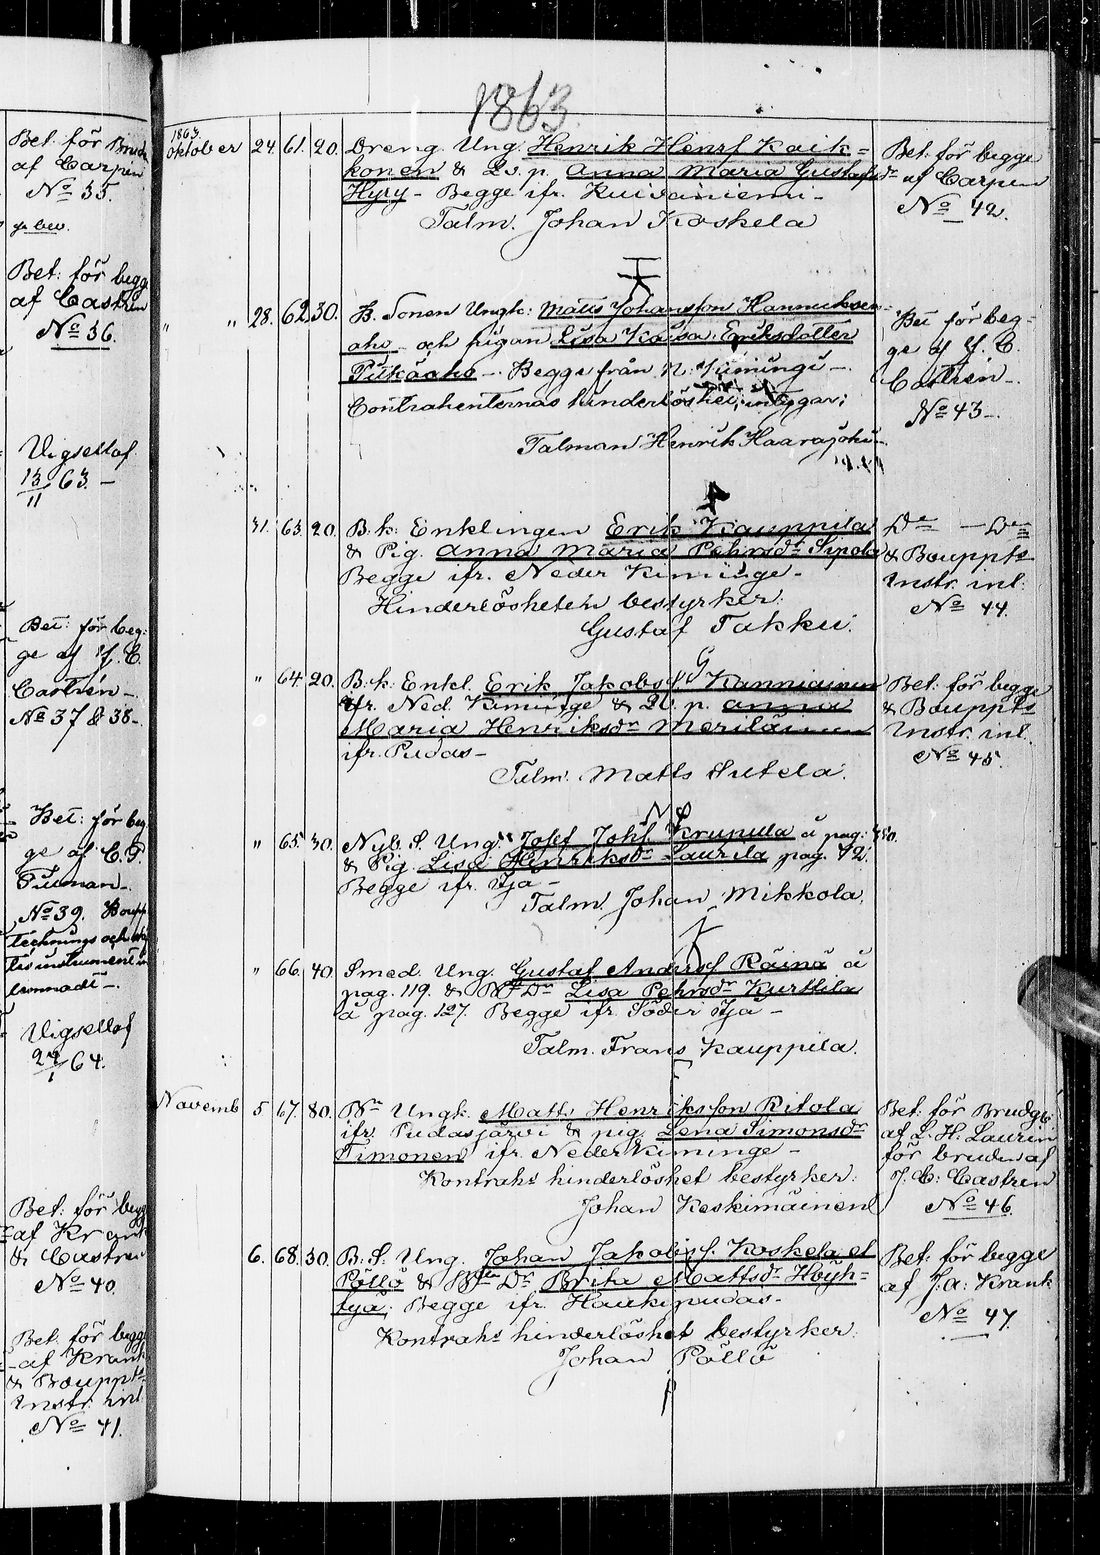 Bet. för Brude
af Carpen
No 35.
Bet: för begg
af Castrén
No 36.
Vigsellaf
13/11 63. —
Bet: för beg:
ge af J. C.
Castrén —.
No 37 & 38 —.
Bet: för beg
ge af C. P.
No 39.
Vigsellaf
24/1 64.
Bet: för begg
af Krank
& Castren
No 40.
Bet: för begg
af Krank
& Bouppts
Instr. inl.
No 41.
1863.
1863.
Oktober 24. 61. 20. Dreng. Ung. Henrik Henrs Kaik=
konen & Qv. p. Anna Maria Gustafsdr
Hyry — Begge ifr. Kuivaniemi —
Talm. Johan Koskela
Bet. för begge
af Carpen
No 42.
" " 28. 62. 30. B. Sonen Ungk: Matts Johansson Hannuksen
aho — och pigan Lisa Kaisa Eriksdotter
Pitkäaho —. Begge från N: Kiimingi —.
Contrahenternas hinderlöshet intygar:
Talman Henrik Haarajoki —.
Bet för beg-
ge af J. C.
Castrén —.
No 43 —.
31. 63. 20. B. k. Enklingen Erik Kauppila
& Pig. Anna Maria Pehrsdr Sipola
Begge ifr. Neder Kiminge —
Hinderlösheten bestyrker:
Gustaf Takku.
De — De
& Bouppts
Instr. inl.
No 44.
" 64. 20. B. k. Enkl. Erik Jakobs. Kanniainen
ifr. Ned. Kiminge & Qv. p. Anna
Maria Henriksdr Meriläinen
ifr. Pudas —
Talm. Matts Sutela.
Bet. för begge
& Bouppts
Instr. inl.
No 45.
" 65. 30. Nyb. S. Ung. Josef Johs. Krupula å pag: 450.
& Pig. Lisa Henriksdr Laurila pag. 42.
Begge ifr. Ija —
Talm. Johan Mikkola.
" 66. 40. Smed. Ung. Gustaf Andersf Räinä å
pag. 119. & Bf Dr Lisa Pehrsdr Kurttila
å pag. 127. Begge ifr. Söder Ija —
Talm. Frans Kauppila.
Novemb 5 67. 80. Bn Ungk. Matts Henriksson Ritola
ifr. Pudasjärvi & pig. Lena Simonsdr
Timonen ifr. Neder Kiminge —
Kontrahs hinderlöshet bestyrker:
Johan Keskimäinen
Bet: för Brudg.
af L. H. Laurin
för bruden af
J. C: Castren
No 46.
6. 68. 30. B. S. Ung. Johan Jakobs. Koskela el
Pöllö & Dr Brita Mattsdr Höyh=
tyä: Begge ifr. Haukipudas —
Kontrahs hinderlöshet bestyrker:
Johan Pöllö
Bet: för begge
af J. A: Krank
No 47.